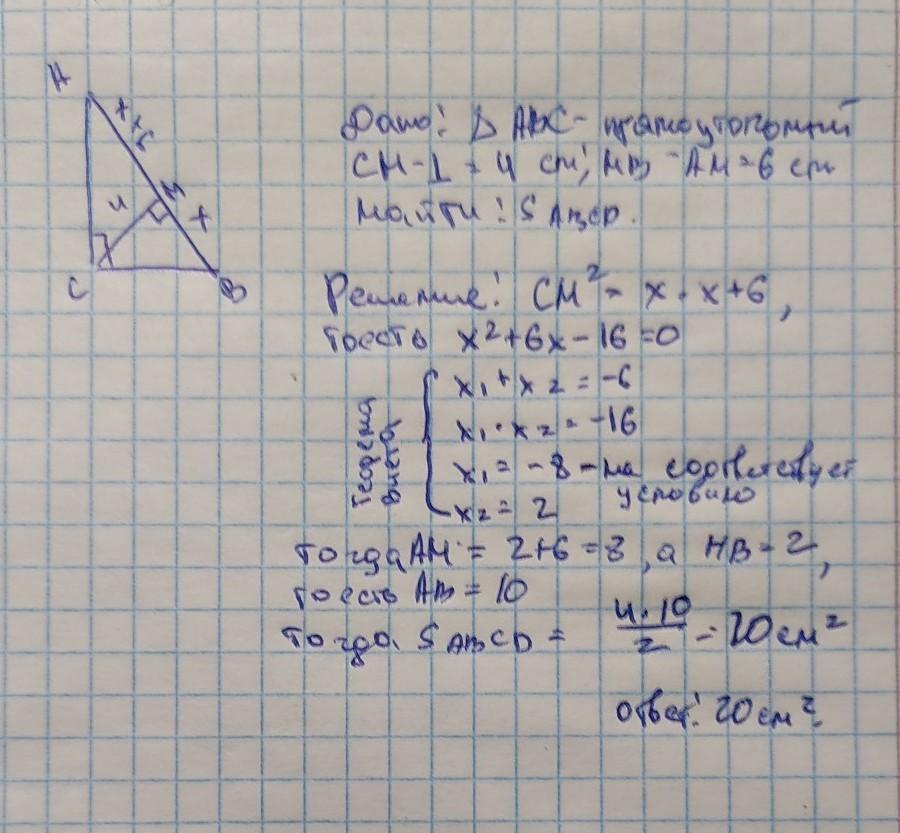 A
x+6
H
4
x
C
B
Дано: Δ ABC - прямоугольный
CH-⊥ = 4 cm; HB - AH = 6 cm
Найти: S ABCD.
Решение: CH² = x · x+6,
тоесть x²+6x-16=0
Теорема Виета
x₁ + x₂ = -6
x₁ · x₂ = -16
x₁ = -8 - не соответствует
условию
x₂ = 2
Тогда AH = 2+6=8, а HB = 2,
тоесть AB = 10
Тогда S ABCD = 4·10/2 = 20 см²
Ответ: 20 см².